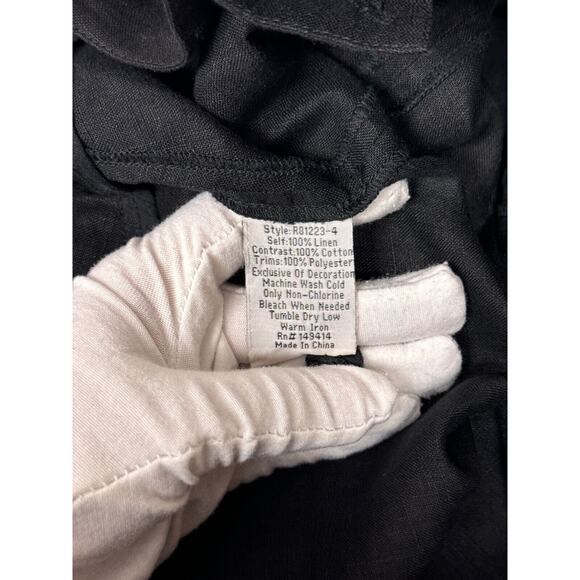 Style: R81223-4
Self:100% Linen
Contrast:100% Cotton
Trims:100% Polyester
Exclusive Of Decoration
Machine Wash Cold
Only Non-Chlorine
Bleach When Needed
Tumble Dry Low
Warm Iron
Rn# 149414
Made In China